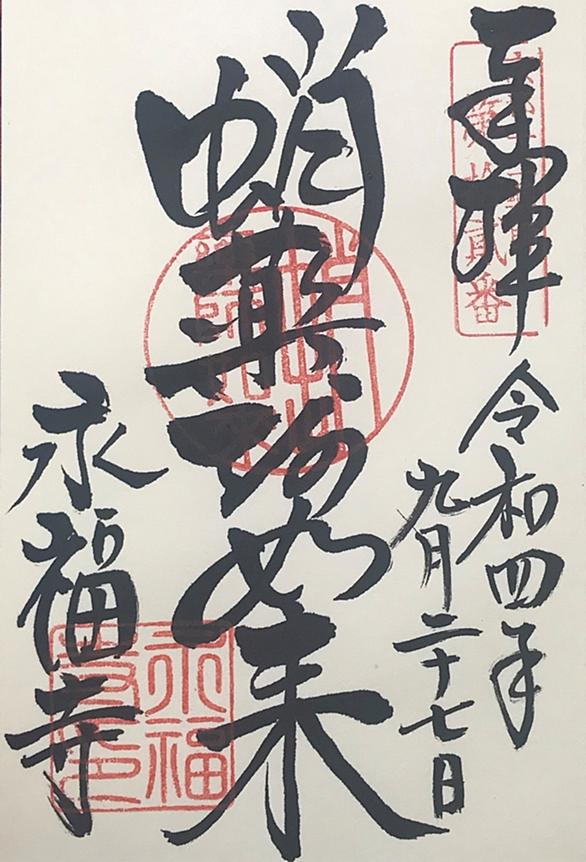 奉拝
第拾貳番
令和四年
九月二十七日
蛸薬師如来
永福寺
永福
寺印